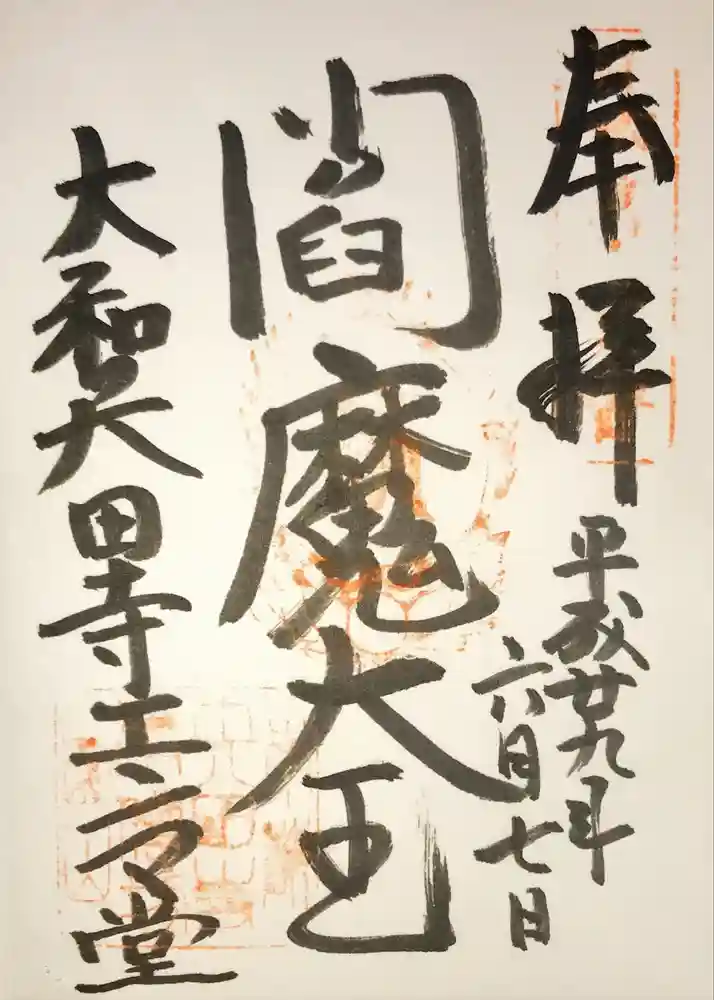 奉拝
平成廿九年
六月七日
閻魔大王
大和矢田寺エンマ堂